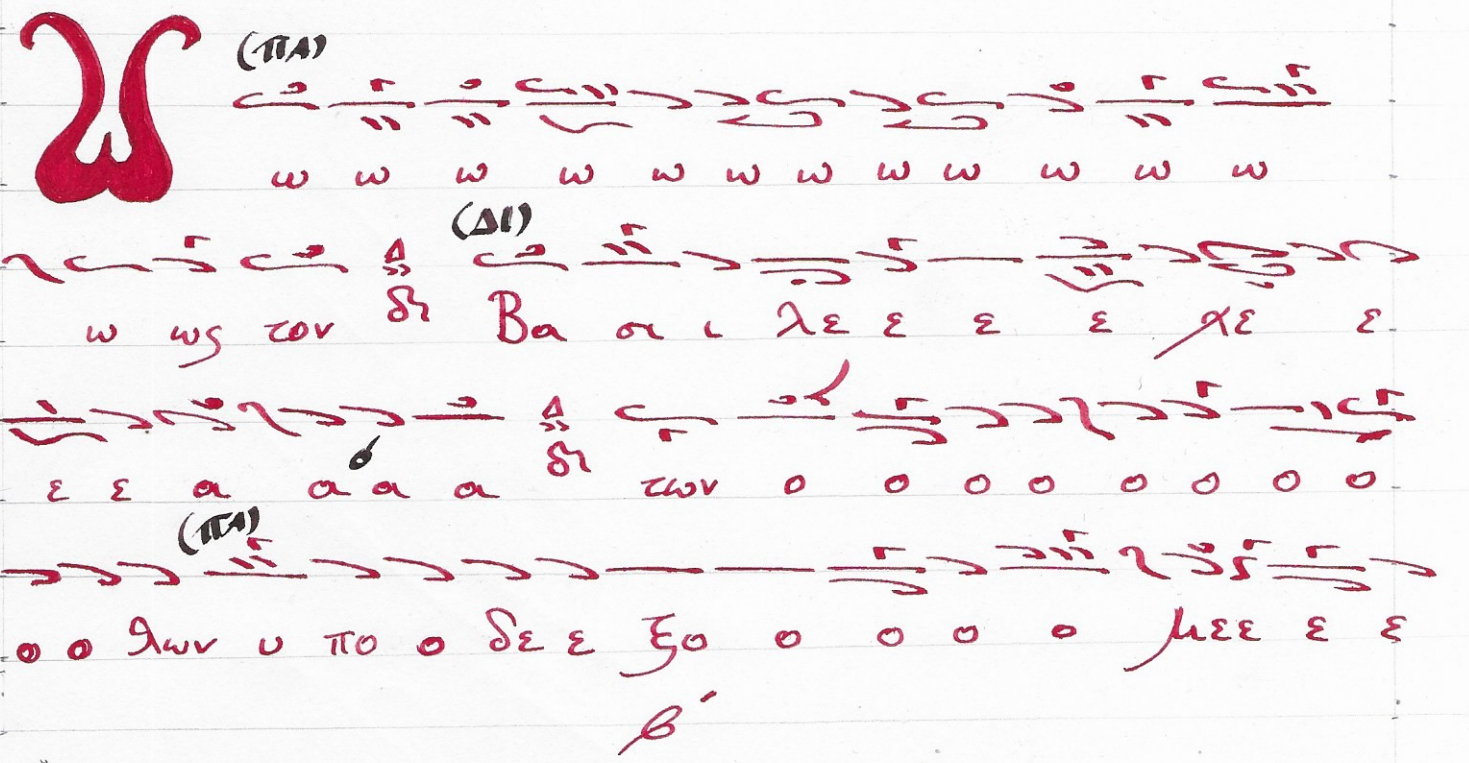 (πΑ)
Ω ω ω ω ω ω ω ω ω ω ω ω ω
(ΔΙ)
ω ως τον Δ δι Βα σι ι λε ε ε ε χε ε
ε ε α α α α Δ δι των ο ο ο ο ο ο ο ο
(πΑ)
ο ο λων υ πο ο δε ε ξο ο ο ο ο με ε ε ε
β´